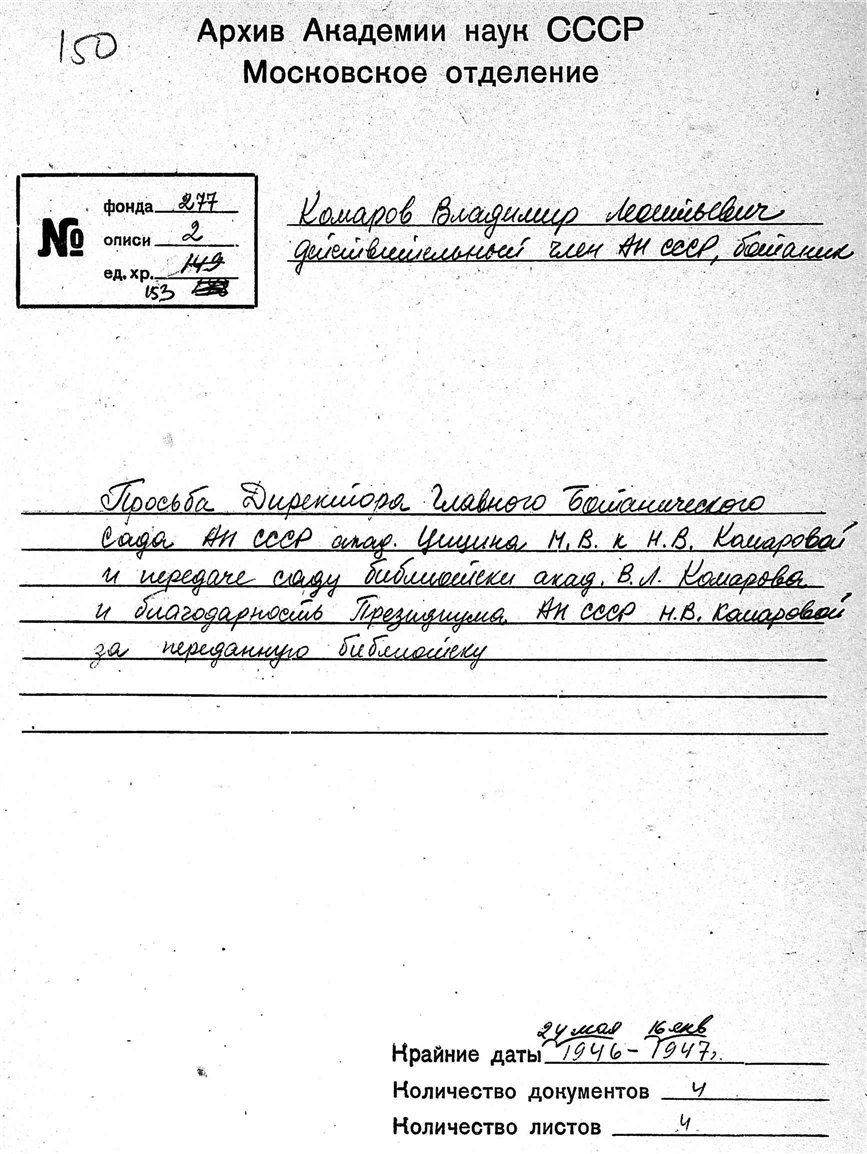 150
Архив Академии наук СССР
Московское отделение
№
фонда 277
описи 2
ед. хр. 149
153
Комаров Владимир Леонтьевич
действительный член АН СССР, ботаник
Просьба Директора Главного Ботанического
Сада АН СССР акад. Цицина Н.В. к Н.В. Комаровой
и передаче саду библиотеки акад. В.Л. Комарова
и благодарность Президиума АН СССР Н.В. Комаровой
за переданную библиотеку
24 мая 16 янв
Крайние даты 1946 – 1947г.
Количество документов 4
Количество листов 4